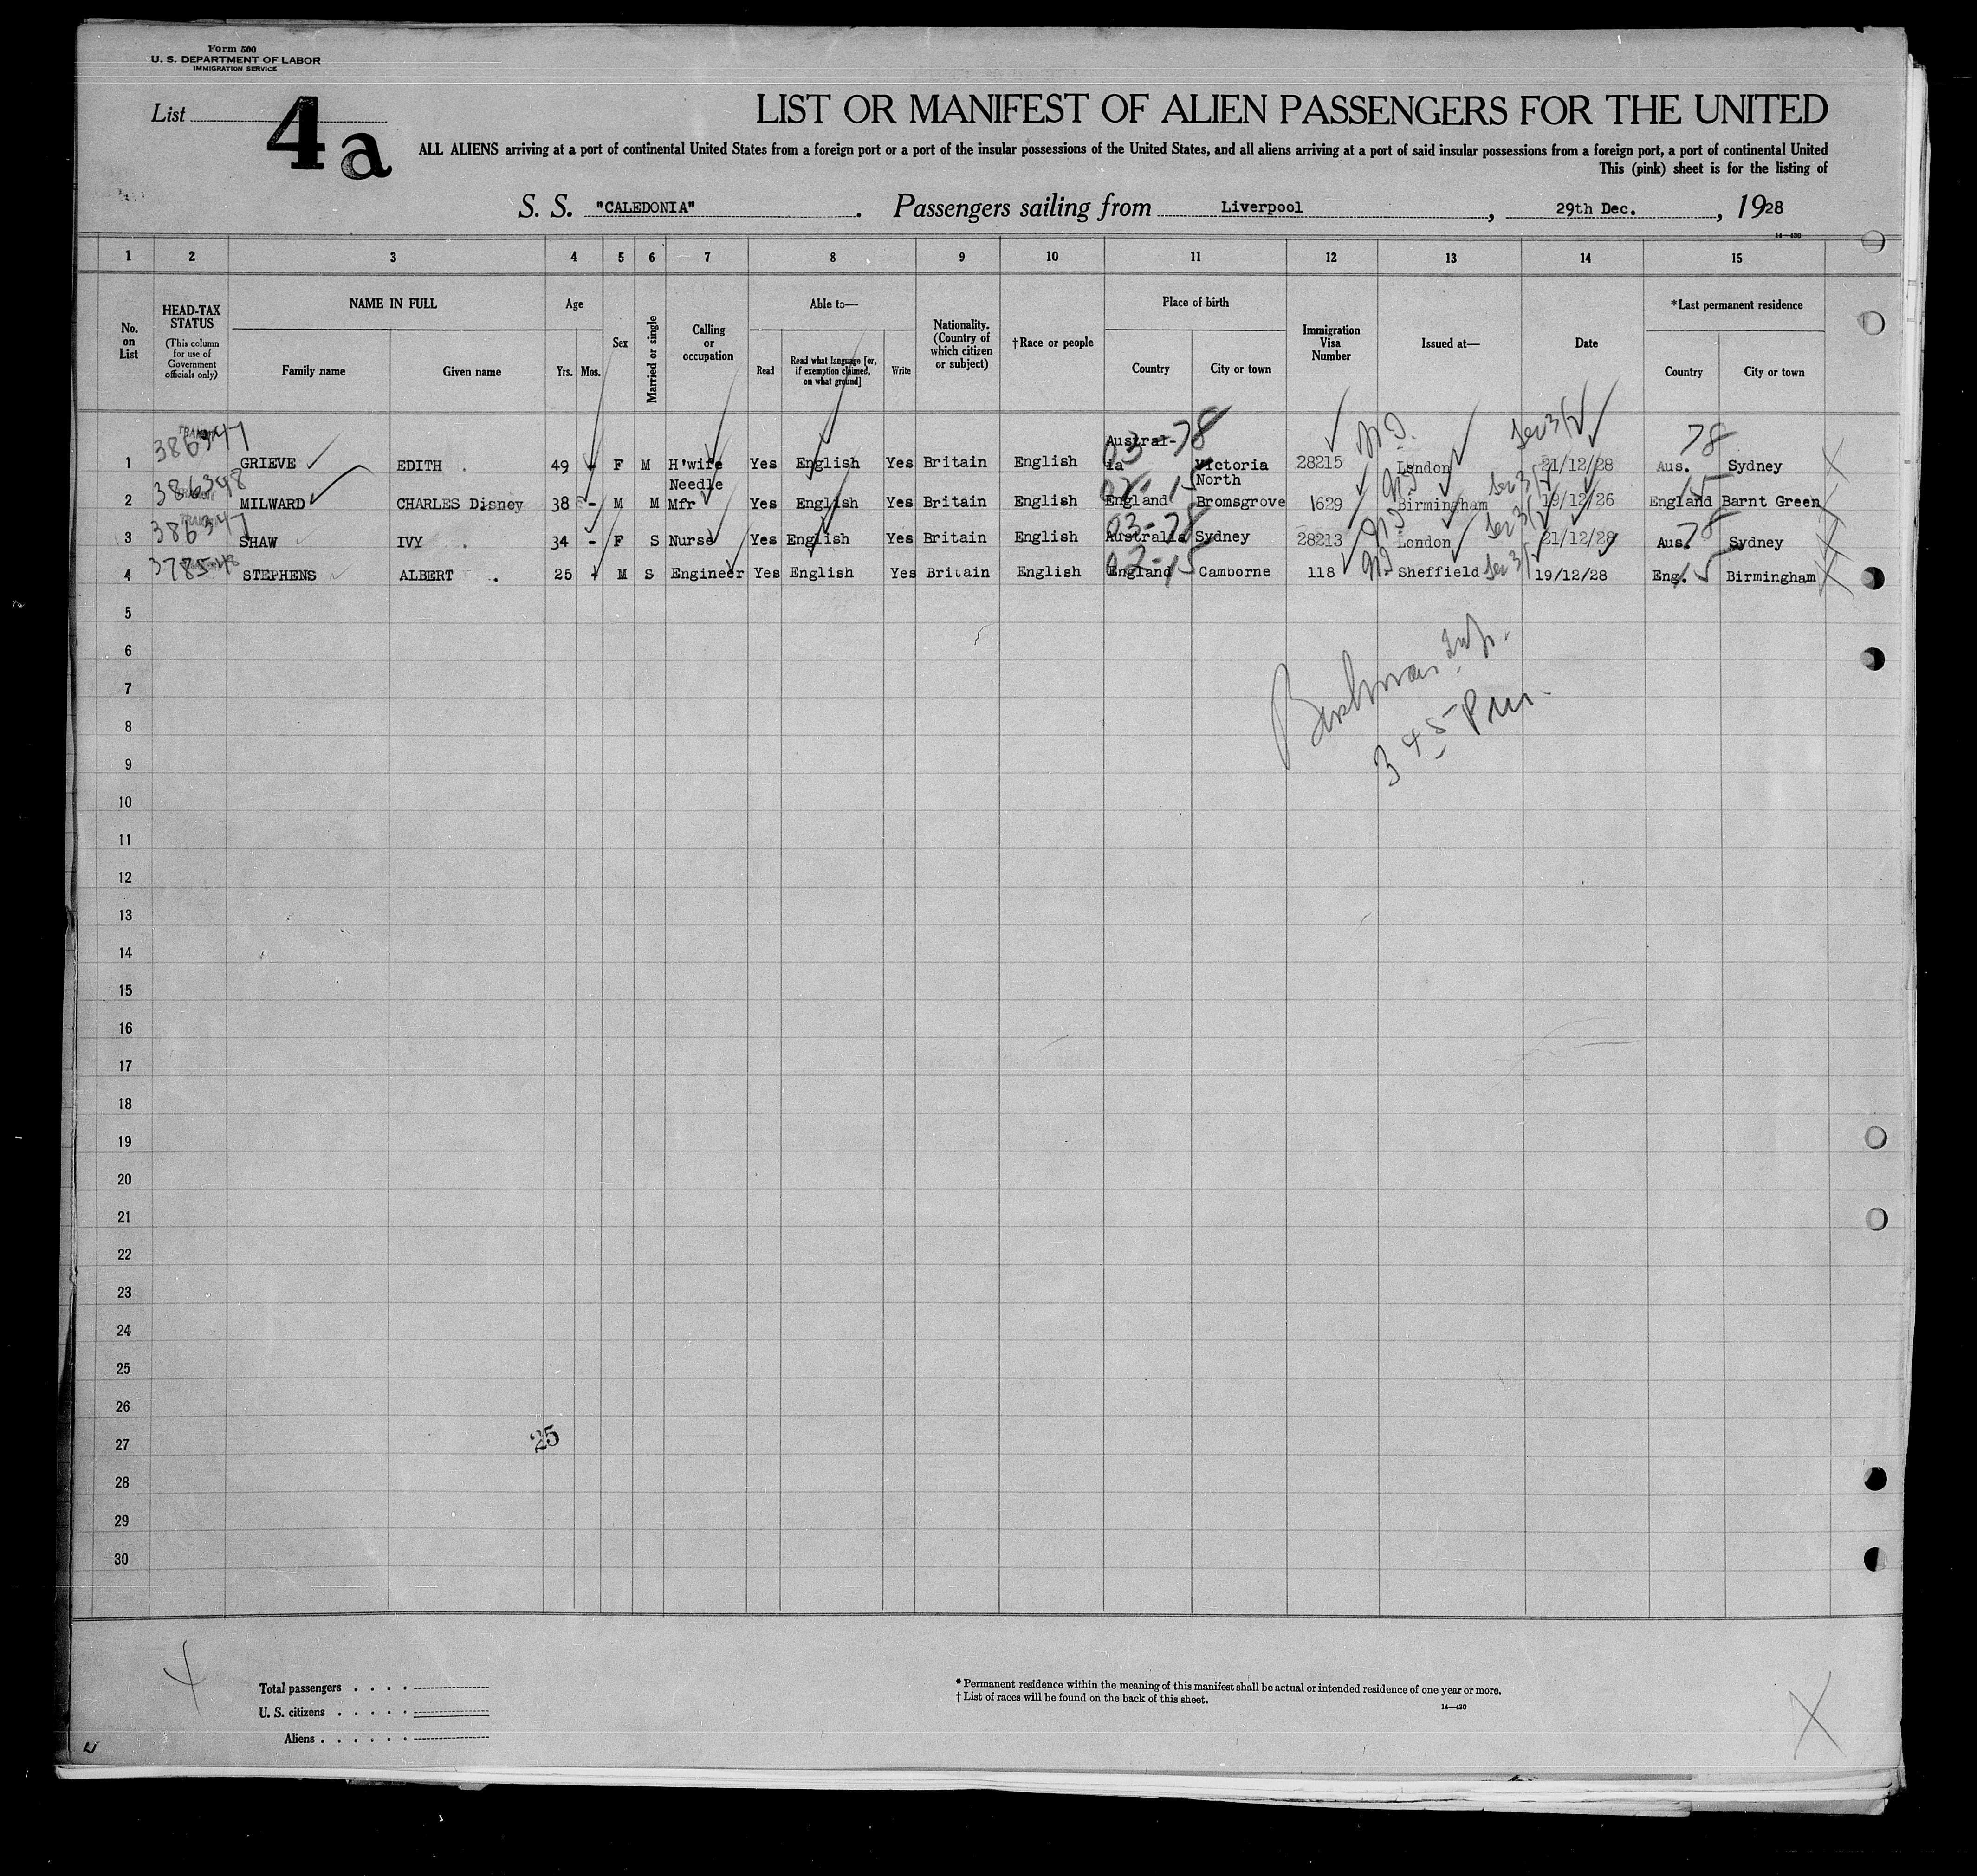 Form 500
U. S. DEPARTMENT OF LABOR
IMMIGRATION SERVICE
List 4a
LIST OR MANIFEST OF ALIEN PASSENGERS FOR THE UNITED
ALL ALIENS arriving at a port of continental United States from a foreign port or a port of the insular possessions of the United States, and all aliens arriving at a port of said insular possessions from a foreign port, a port of continental United
This (pink) sheet is for the listing of
S. S. "CALEDONIA". Passengers sailing from Liverpool, 29th Dec., 1928
14—430
1 2 3 4 5 6 7 8 9 10 11 12 13 14 15
No. on List
HEAD-TAX STATUS (This column for use of Government officials only)
NAME IN FULL
Family name
Given name
Age
Yrs.
Mos.
Sex
Married or single
Calling or occupation
Able to—
Read
Read what language [or, if exemption claimed, on what ground]
Write
Nationality. (Country of which citizen or subject)
†Race or people
Place of birth
Country
City or town
Immigration Visa Number
Issued at—
Date
*Last permanent residence
Country
City or town
1 386347 GRIEVE EDITH 49 - F M H'wife Yes English Yes Britain English Austral-ia 03-78 Victoria 28215 London 21/12/28 Aus. 78 Sydney
2 386348 MILWARD CHARLES Disney 38 - M M Needle Mfr Yes English Yes Britain English England 02-15 North Bromsgrove 1629 Birmingham 19/12/26 England 15 Barnt Green
3 386347 SHAW IVY 34 - F S Nurse Yes English Yes Britain English Australia 03-78 Sydney 28213 London 21/12/28 Aus. 78 Sydney
4 378548 STEPHENS ALBERT 25 - M S Engineer Yes English Yes Britain English England 02-15 Camborne 118 Sheffield 19/12/28 Eng. 15 Birmingham
5
6
7
8
3 45 Pm.
9
10
11
12
13
14
15
16
17
18
19
20
21
22
23
24
25
26
27
25
28
29
30
Total passengers
U. S. citizens
Aliens
* Permanent residence within the meaning of this manifest shall be actual or intended residence of one year or more.
† List of races will be found on the back of this sheet.
14—430